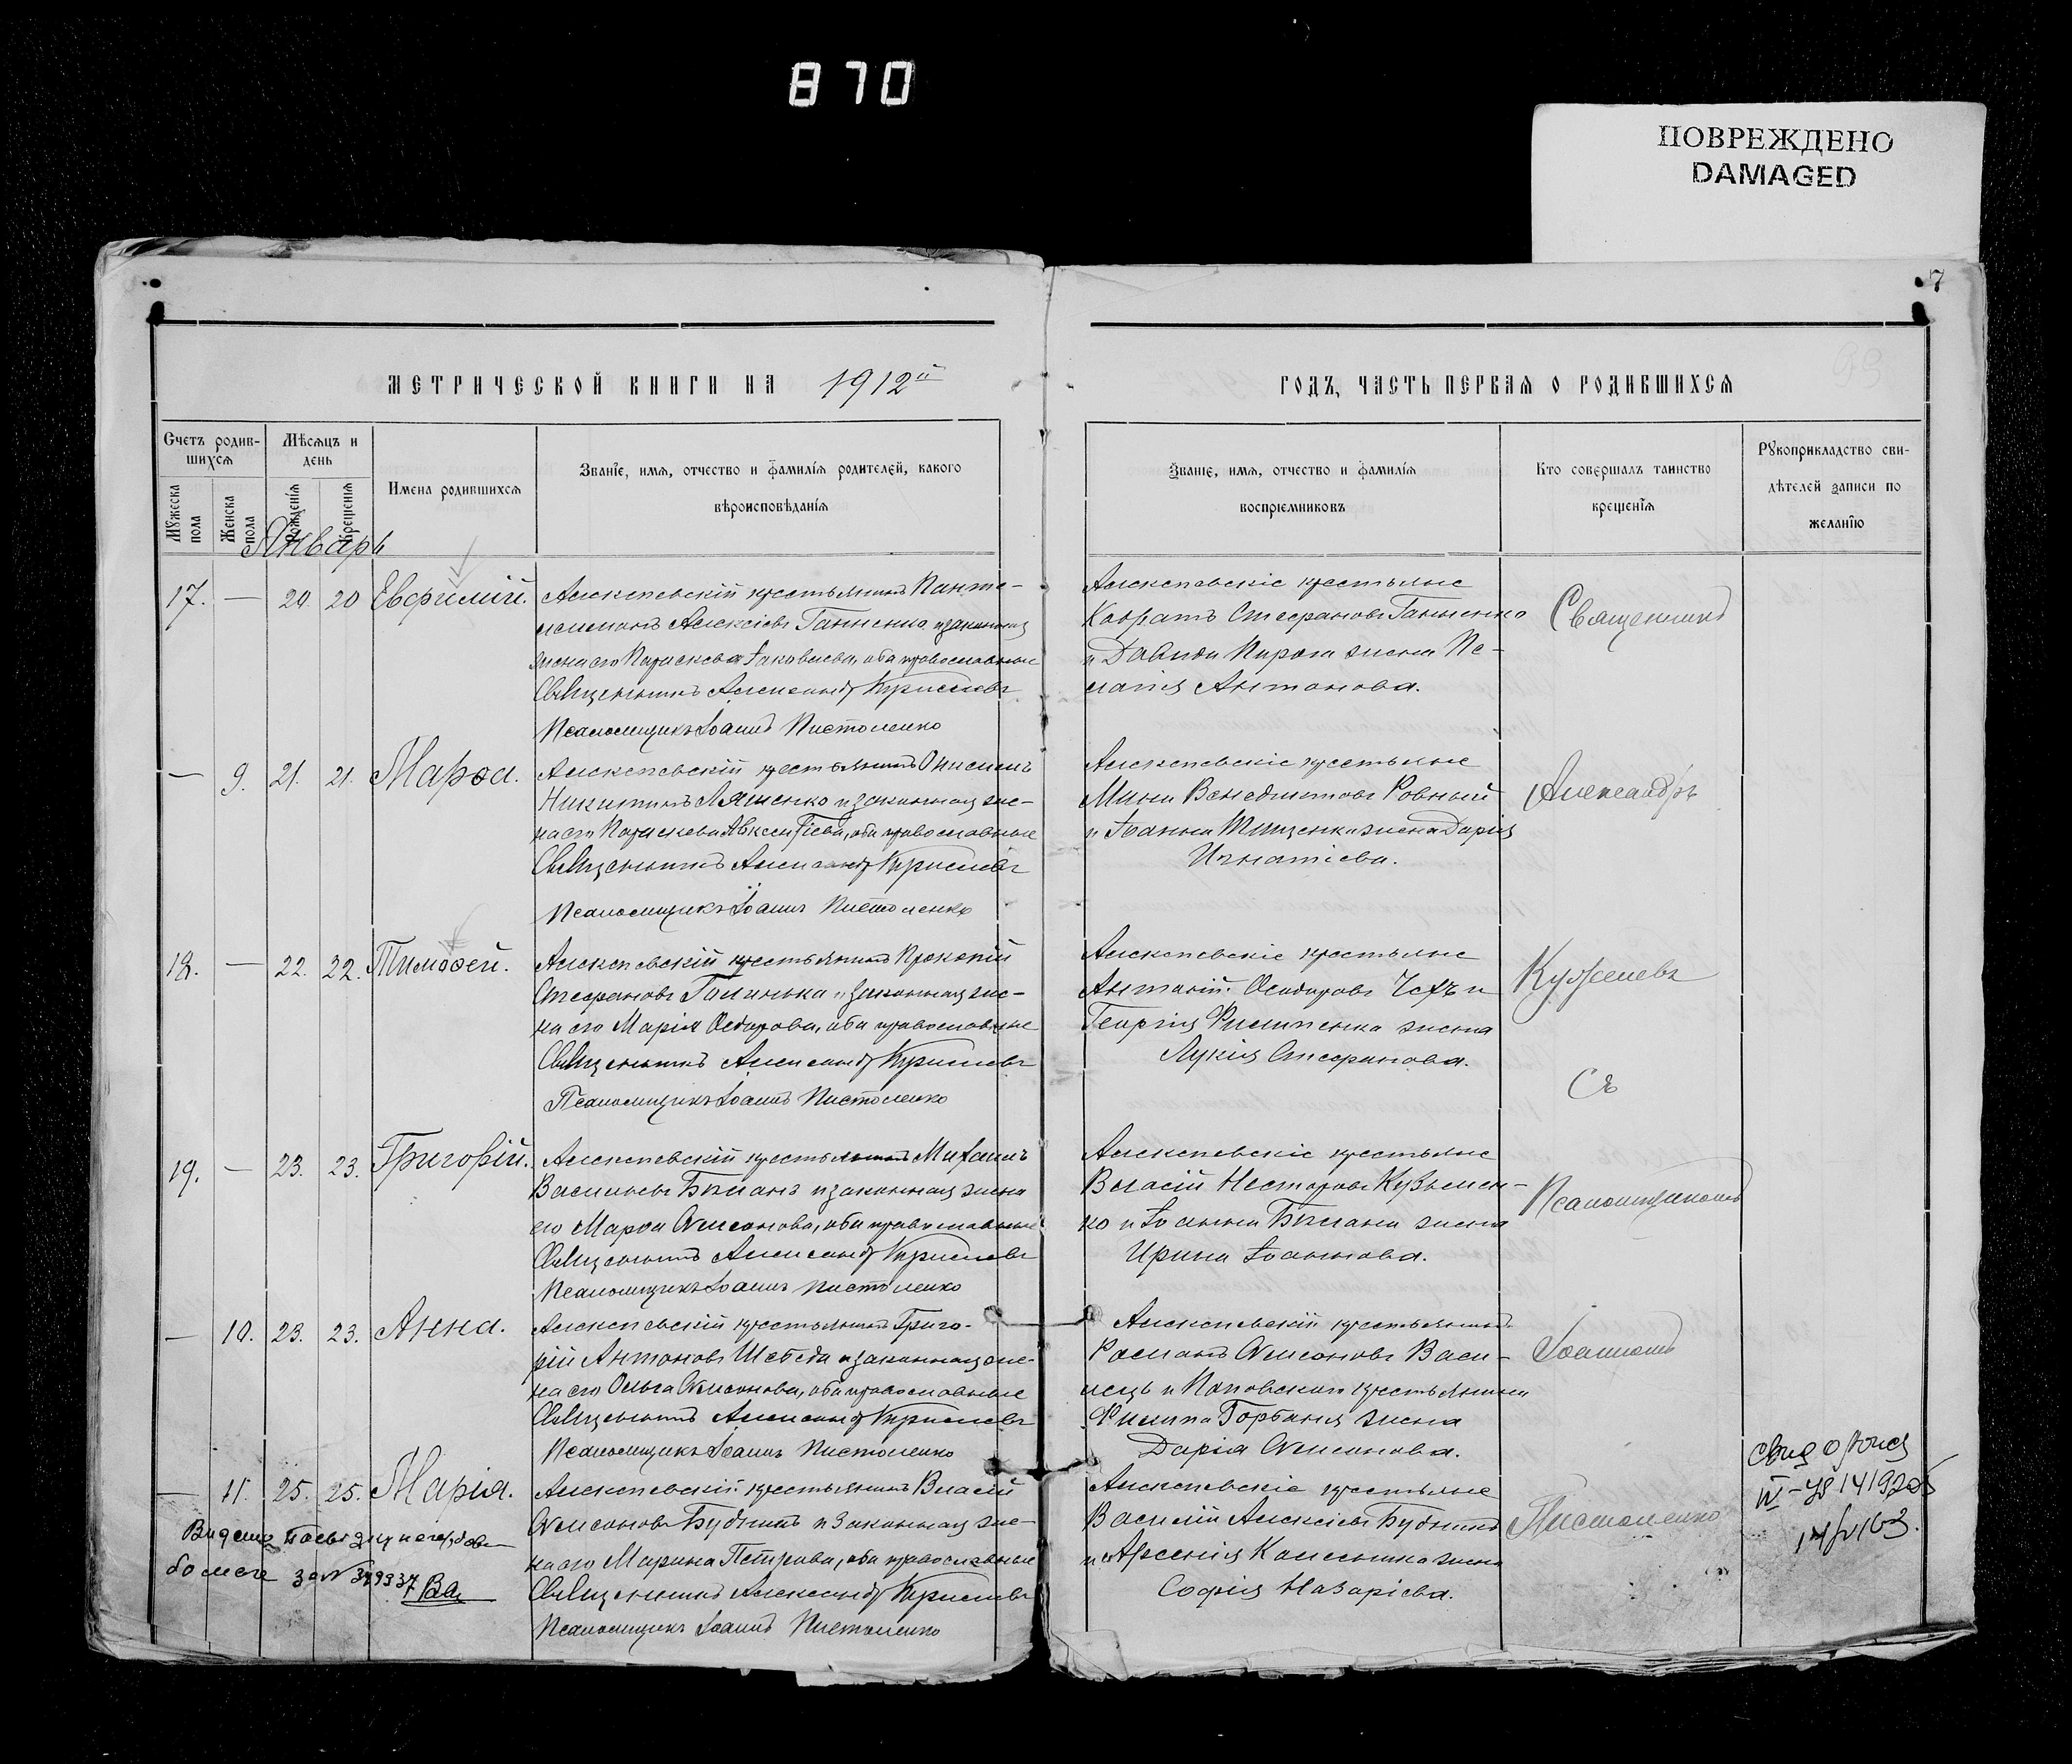 870
ПОВРЕЖДЕНО
DAMAGED
7
МЕТРИЧЕСКОЙ КНИГИ НА 1912й
ГОДЪ, ЧАСТЬ ПЕРВАЯ О РОДИВШИХСЯ
Счетъ родив-
шихся
Мужеска пола
Женска пола
Мѣсяцъ и
день
Рожденія
Крещенія
Имена родившихся
Званіе, имя, отчество и фамилія родителей, какого
вѣроисповѣданія
Званіе, имя, отчество и фамилія
воспріемниковъ
Кто совершалъ таинство
крещенія
Рукоприкладство сви-
дѣтелей записи по
желанію
Январь
17. — 20. 20 Евфимій.
Алексѣевскій крестьянинъ Панте-
леимонъ Алексіевъ Ганненко и законная
жена его Параскева Іаковлева, оба православные
Священникъ Александръ
Псаломщикъ Іоаннъ Пистоленко
Алексѣевскіе крестьяне
Кодратъ Стефановъ Ганненко
и Давида Пирога жена Пе-
лагія Антонова.
Священникъ
— 9. 21. 21. Марѳа.
Алексѣевскій крестьянинъ Онисимъ
Никитинъ Ляшенко и законная же-
на его Параскева Авксентіева, оба православные
Священникъ Александръ
Псаломщикъ Іоаннъ Пистоленко
Алексѣевскіе крестьяне
Мина Венедиктовъ Ровный
и Іоанна Тищенка жена Дарія
Игнатіева.
Александръ
18. — 22. 22. Тимоѳей.
Алексѣевскій крестьянинъ Прокопій
Стефановъ Галинька и законная же-
на его Марія Ѳедорова, оба православные
Священникъ Александръ
Псаломщикъ Іоаннъ Пистоленко
Алексѣевскіе крестьяне
Антоній Ѳеодоровъ Чехъ и
Георгія Филипенка жена
Лукія Стефанова.
съ
19. — 23. 23. Григорій.
Алексѣевскій крестьянинъ Михаилъ
Васильевъ Бѣланъ и законная жена
его Марѳа Симеонова, оба православные
Священникъ Александръ
Псаломщикъ Іоаннъ Пистоленко
Алексѣевскіе крестьяне
Власій Несторовъ Кузьмен-
ко и Іоанна Бѣлана жена
Ирина Іоаннова.
Псаломщикомъ
— 10. 23. 23. Анна.
Алексѣевскій крестьянинъ Григо-
рій Антоновъ Шебеда и законная же-
на его Ольга Симеонова, оба православные
Священникъ Александръ
Псаломщикъ Іоаннъ Пистоленко
Алексѣевскій крестьянинъ
Романъ Симеоновъ Васи-
лецъ и Поповскаго крестьянина
Филиппа Горбаня жена
Дарія Симеонова.
Іоанномъ
— 11. 25. 25. Марія.
Алексѣевскій крестьянинъ Власій
Симеоновъ Будникъ и законная же-
на его Марина Петрова, оба православные
Священникъ Александръ
Псаломщикъ Іоаннъ Пистоленко
Алексѣевскіе крестьяне
Василій Алексіевъ Будникъ
и Арсенія Колесника жена
София Назаріева.
Пистоленко